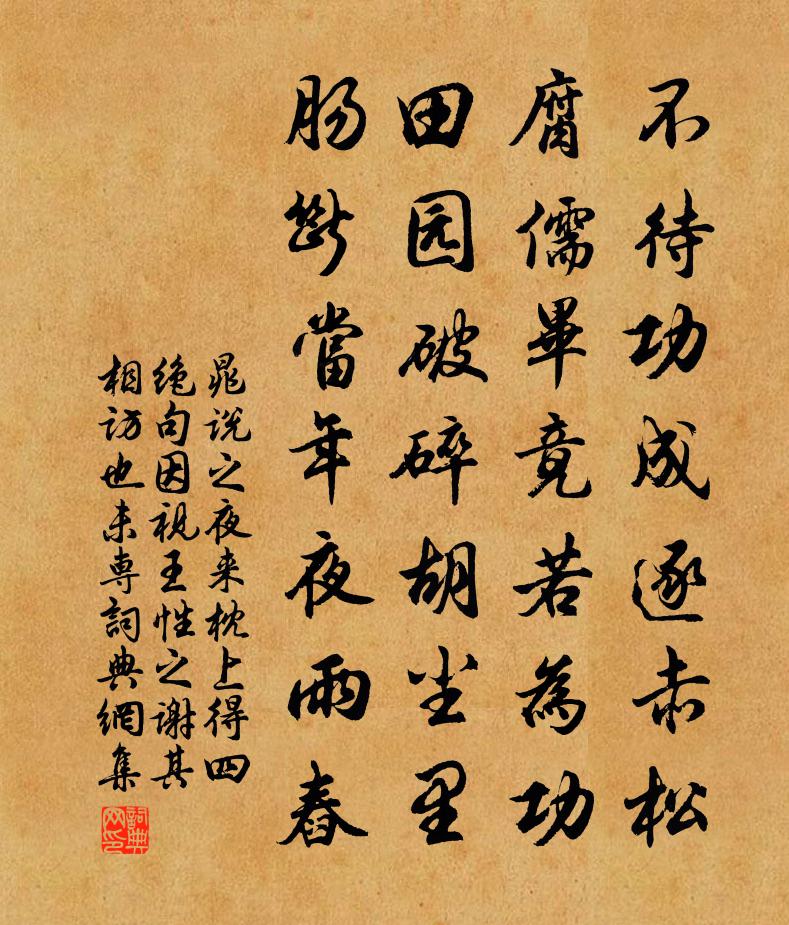 不待功成逐赤松
腐儒畢竟若為功
田园破碎胡尘里
肠斷當年夜雨舂
晁说之夜来枕上得四
绝句因视王性之谢其
相访也未専詞典網集
詞典网印